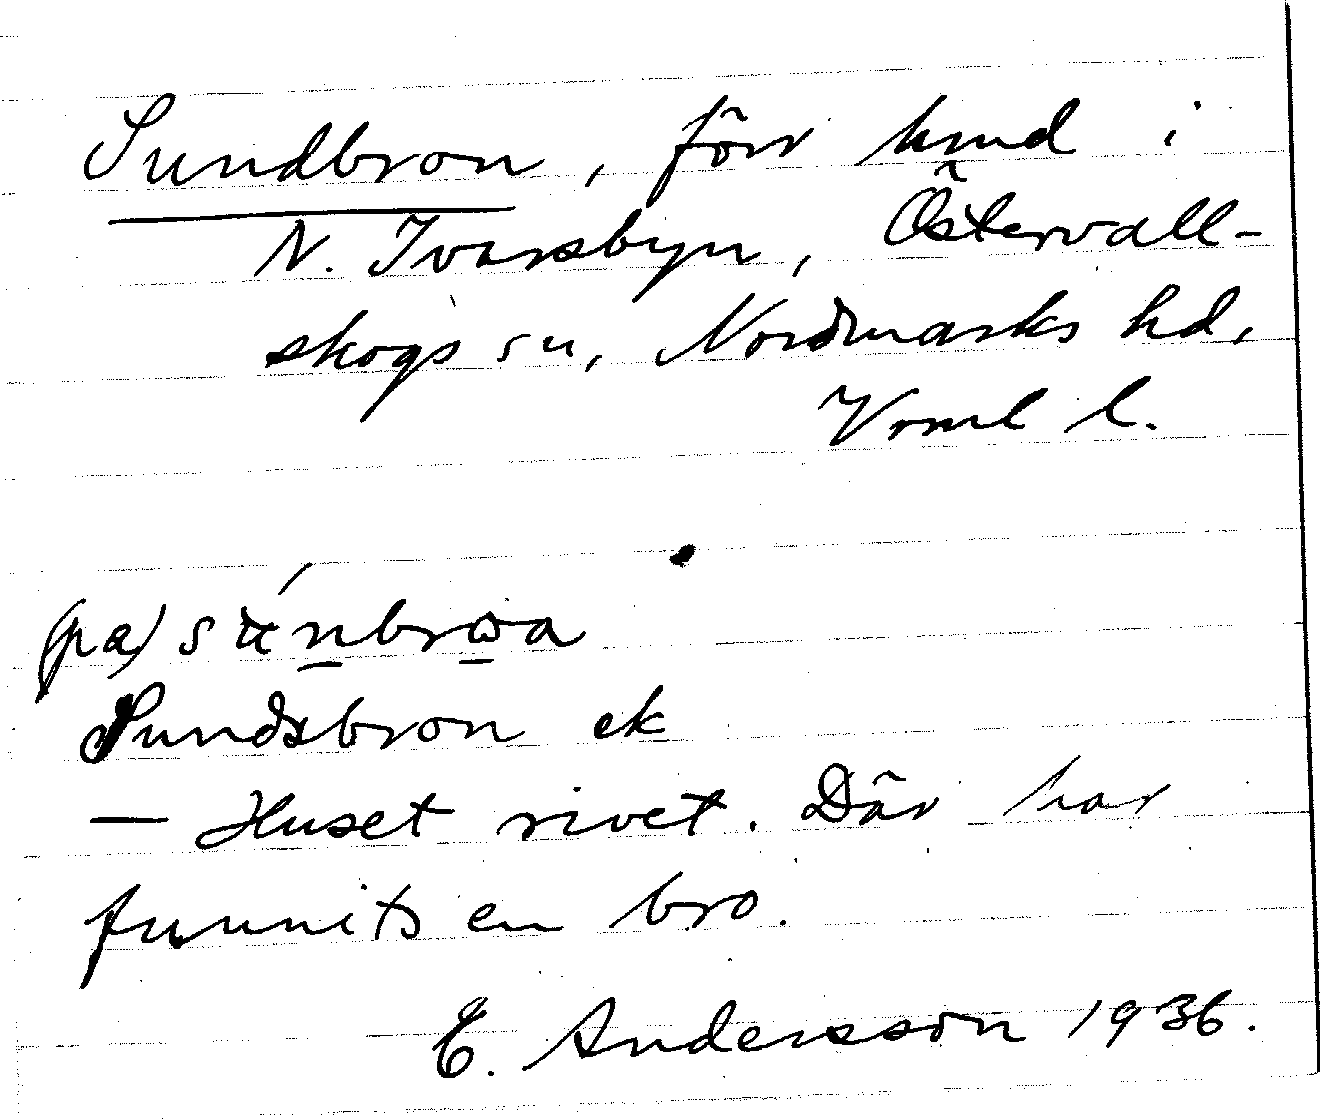 Sundbron, förr hmd i
N. Ivarsbyn, Östervall-
skogs sn, Nordmarks hd,
Vrml l.
(pa)
Sundsbron ek
— Huset rivet. Där har
funnits en bro.
E. Andersson 1936.